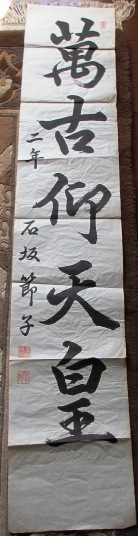 萬古仰天皇
二年 石坂節子